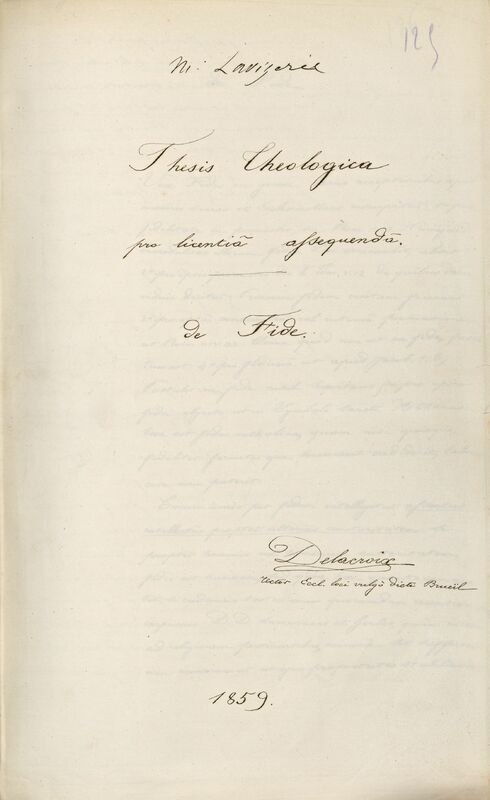 125
M. Lavigerie
Thesis Theologica
pro licentiâ assequendâ.
de Fide.
Delacroix
rector Eccl. loci vulgò dicti Brueil
1859.